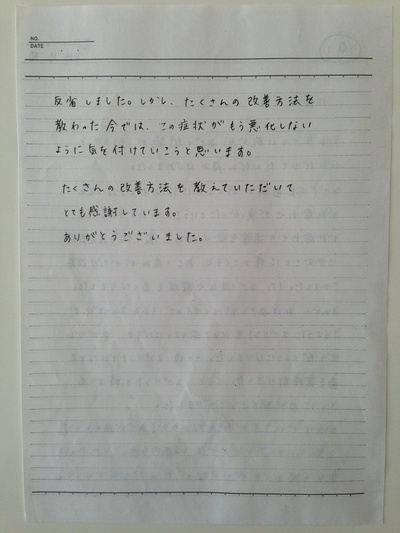 NO.
DATE
反省しました。しかし、たくさんの改善方法を
教わった今では、この症状がもう悪化しない
ように気を付けていこうと思います。
たくさんの改善方法を教えていただいて
とても感謝しています。
ありがとうございました。